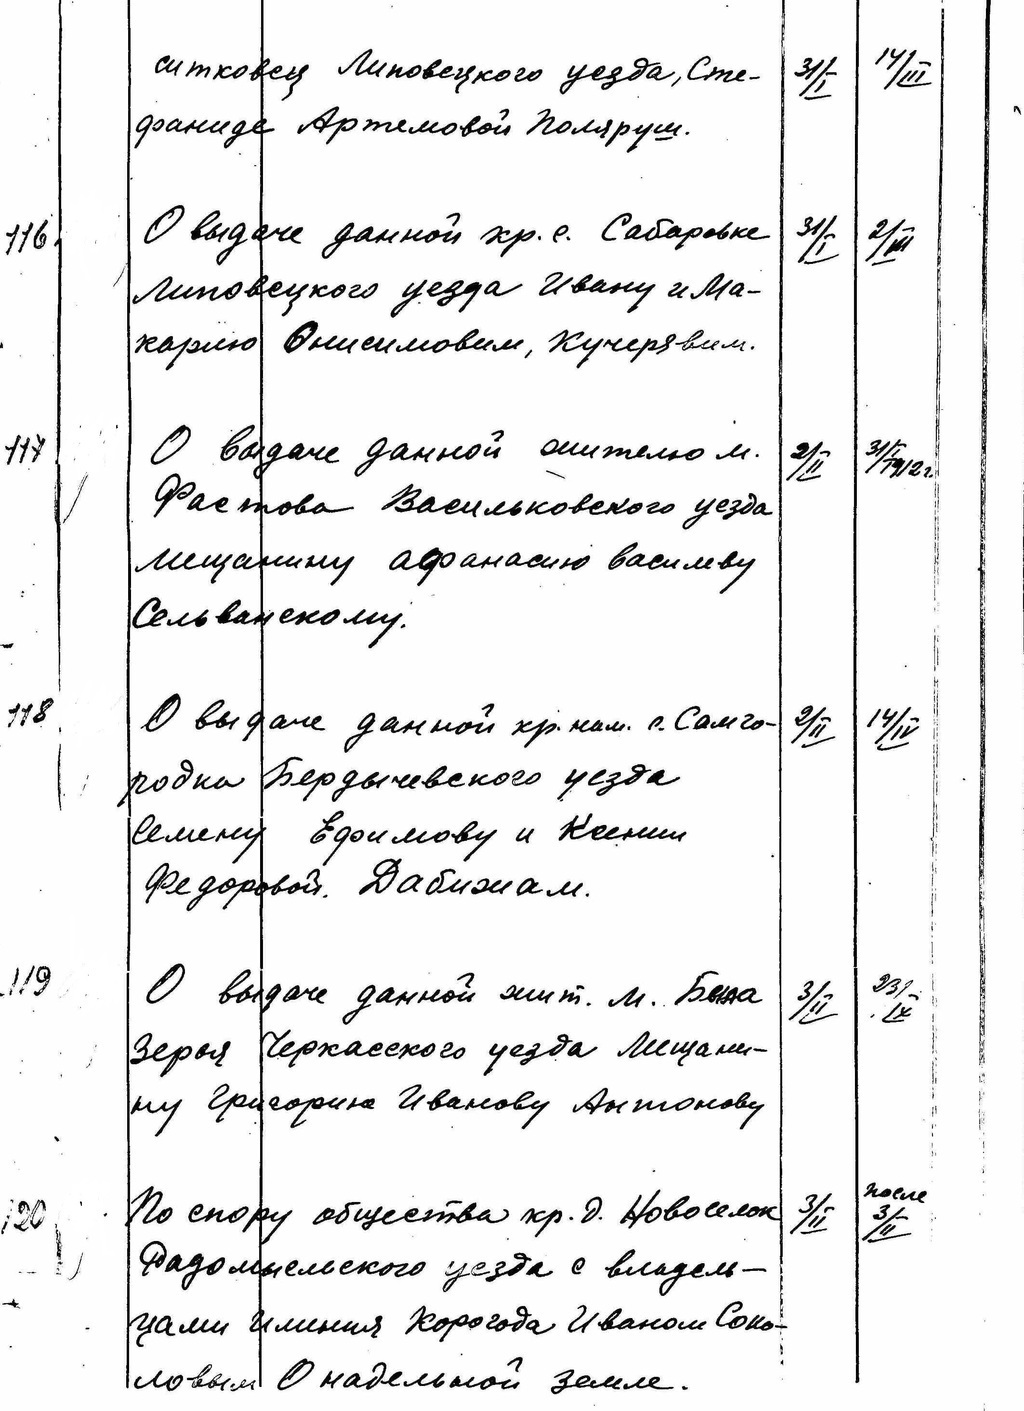 ситковец Липовецкого уезда, Сте- 31/I 14/III
фаниде Артемовой Поляруш.
116. О выдаче данной кр. с. Сабаровке 31/I 2/III
Липовецкого уезда Ивану и Ма-
карлю Онисимовим, Кучерявим.
117 О выдаче данной жителю м. 2/II 31/I 1912г.
Фастова Васильковского уезда
мещанину Афанасию Василеву
Сельванскому.
118 О выдаче данной кр. нам. с. Самго- 2/II 14/IV
родка Бердычевского уезда
Семену Ефимову и Ксении
Федоровой. Дабижам.
119 О выдаче данной жит. м. Бела 3/II 23/IX
Зерья Черкасского уезда Мещани-
ну Григорию Иванову Антонову
120 По спору общества кр. д. Новоселок 3/II после 3/II
Радомысльского уезда с владель-
цами Имения Корогода Иваном Соко-
ловым О надельной земле.